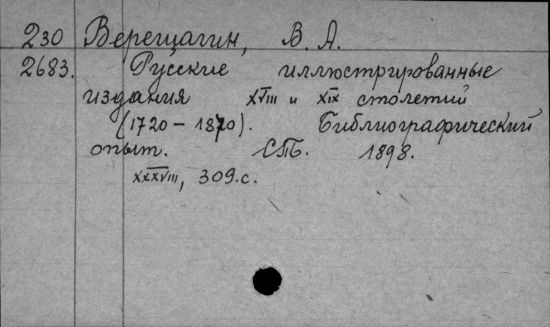 230 Верещагин, В. А.
2683. Русские иллюстрированные
издания XVIII и XIX столетий
(1720 – 1870). Библиографический
опыт. СПБ. 1898.
XXXVIII, 309.с.